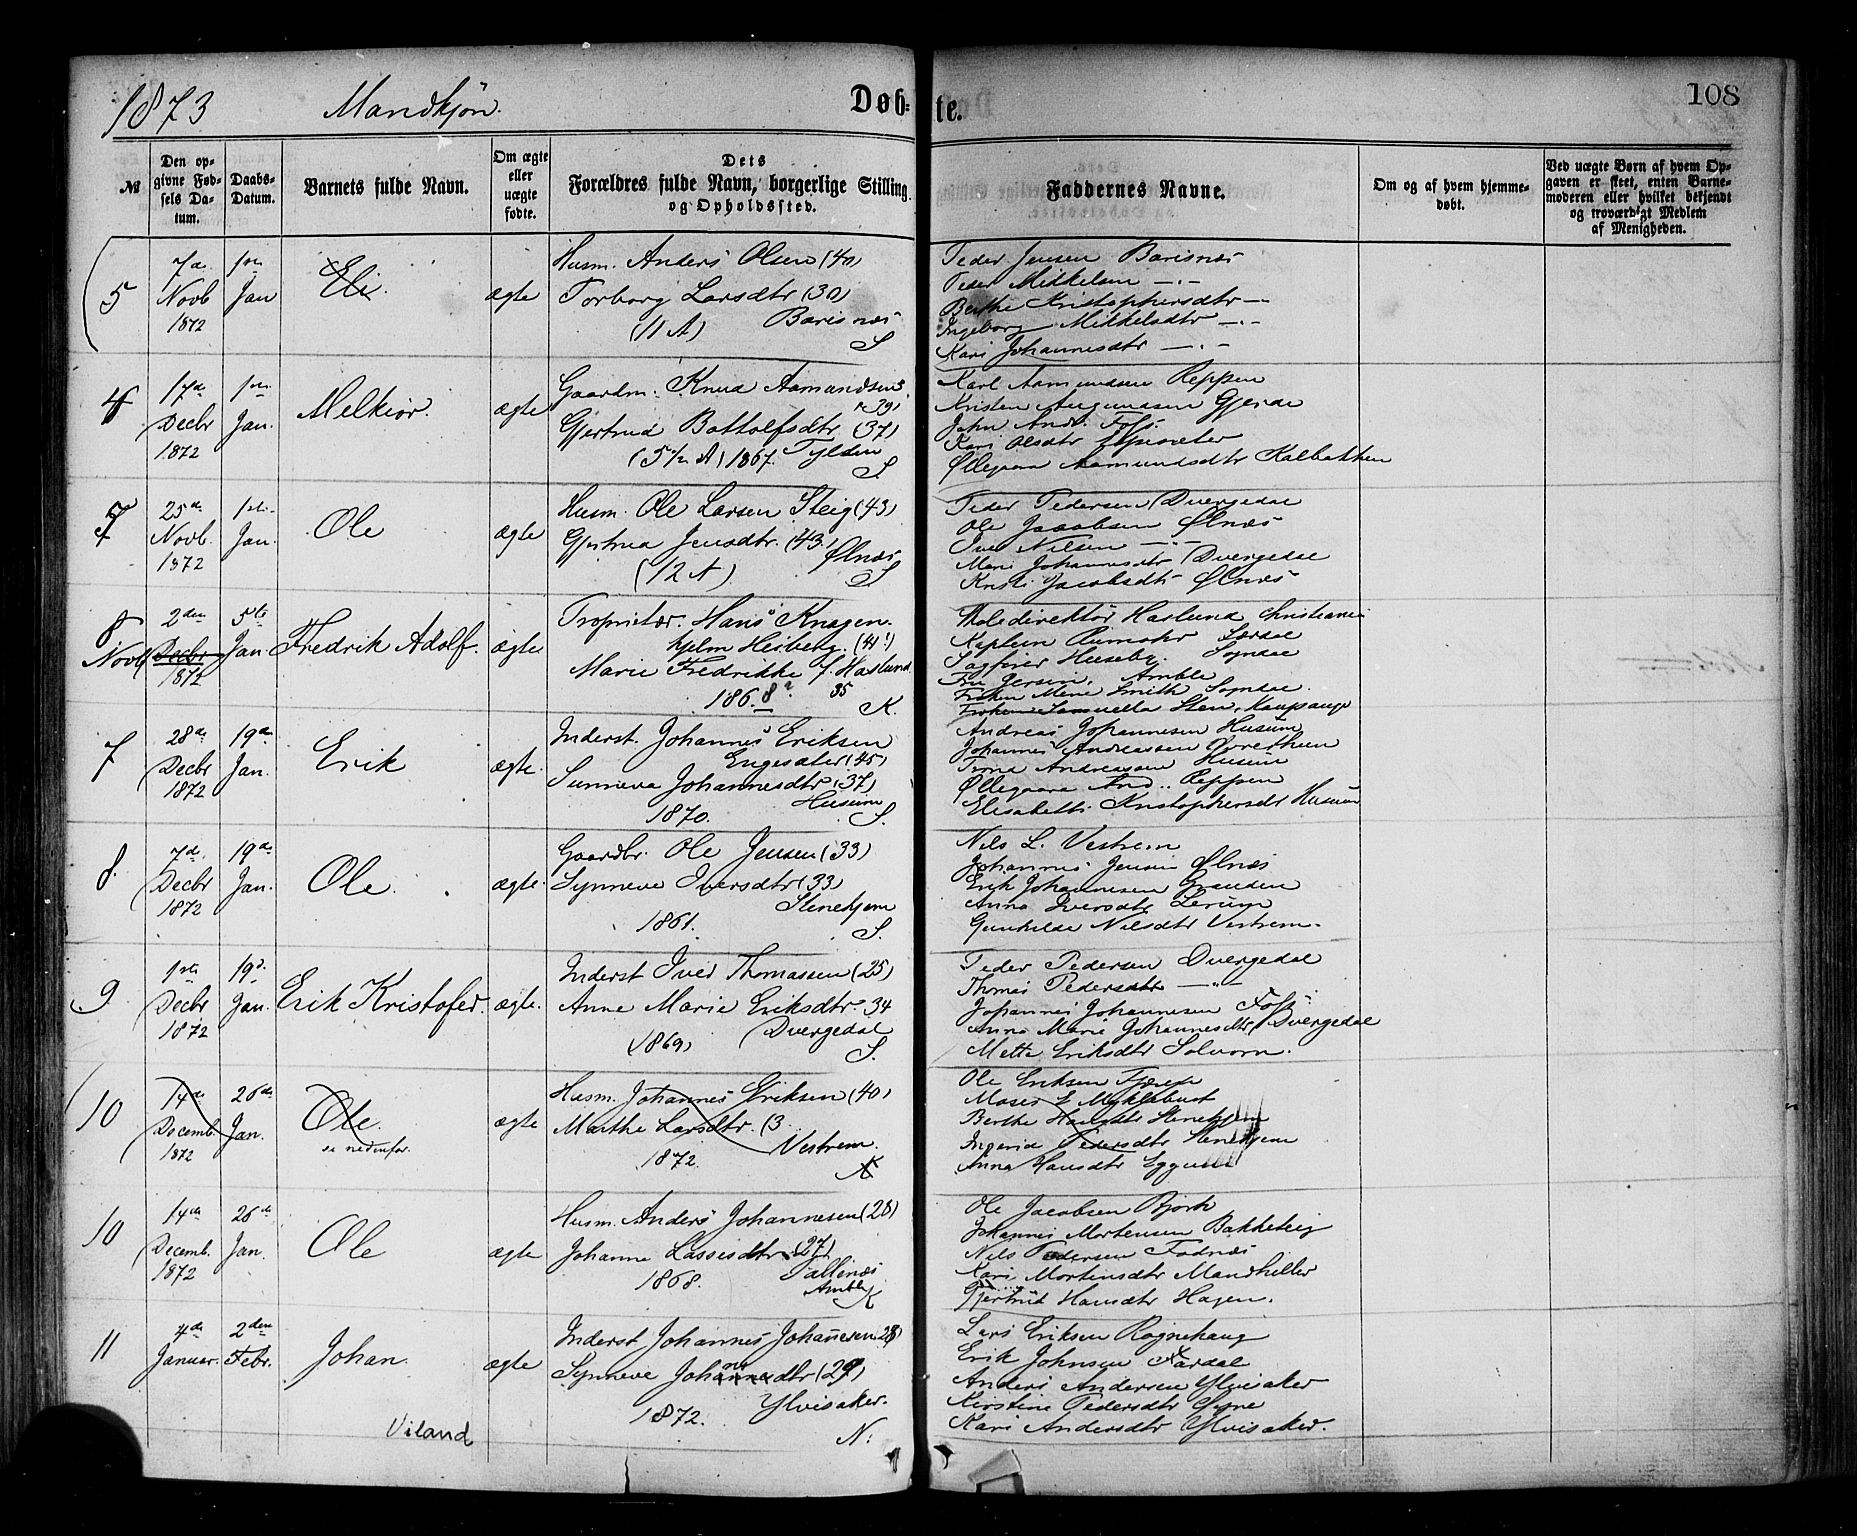 1873
Mandkjøn.
Døb-
te.
108
№
Den op-
givne Fød-
sels Da-
tum.
Daabs-
Datum.
Barnets fulde Navn.
Om ægte
eller
uægte
fødte.
Dets
Forældres fulde Navn, borgerlige Stilling,
og Opholdssted.
Faddernes Navne.
Om og af hvem hjemme-
døbt.
Ved uægte Børn af hvem Op-
gaven er skeet, enten Barne-
moderen eller hvilket bekjendt
og troværdigt Medlem
af Menigheden.
5
7de
Novb
1872
1ste
Jan
Eli.
ægte
Husm. Anders Olsen (40)
Torborg Larsdtr (30)
(11 A) Barisnæs
S
Peder Jensen Barisnæs
Peder Mikkelsen -„-
Berthe Kristophersdtr -„-
Ingeborg Mikkelsdtr -„-
Kari Johannesdtr -„-
17de
Decbr
1872
1ste
Jan.
Melkior.
ægte
Gaardm. Knud Aamundsen
(39)
Gjertrud Bottolfsdtr (37)
(5½ A) 1867. Tylden
S
Karl Aamundsen Reppen
Kristen Augundsen Gjerde
John And. Foss.
Kari Olsdtr
Øllegaard Aamundsdtr Kalbakken
7
25de
Novb.
1872
1ste
Jan.
Ole
ægte
Husm. Ole Larsen Steig (43)
Gjertrud Jensdtr. (43)
(12 A) Ølnæs
S
Peder Pedersen Dvergedal
Ole Jacobsen Ølnæs
Iver Nilsen -„-
Mari Johannesdtr Dvergedal
Kristi Jacobsdtr Ølnæs
8
2den
Novb Decbr
1872
5te
Jan
Fredrik Adolf.
ægte
Proprietær. Hans Knagen-
hjelm Heiberg. (41)
Marie Fredrikke f. Haslund
1868? 35
K.
Toldedirektør Haslund Christiania
Kaptein Rumohr Lærdal
Sagfører Huseby. Sogndal
Fru Amble
Frøken Mene Smith Sogndal.
Frøken Samuella Sten, Kaupanger
7
28de
Decbr
1872
19de
Jan.
Erik
ægte.
Inderst. Johannes Eriksen
Engesæter (45)
Sunneva Johannesdtr (37)
1870. Husum
S.
Andreas Johannesen Husum
Johannes Andreassen
Trond Andreassen Husum
Øllegaard And.. Reppen
Elisabeth Kristophersdtr Husum
8.
7de
Decbr
1872
19de
Jan.
Ole.
ægte.
Gaardbr. Ole Jensen (33)
Synneve Iversdtr (33)
Stenehjem
1861.
S.
Nils L. Vestrem
Johannes Jensen Ølnæs
Erik Johannesen Granden
Anna Iversdtr Lerum
Gunhilde Nilsdtr Vestrem.
9.
1ste
Decbr
1872
19d.
Jan.
Erik Kristofer.
ægte.
Inderst Iver Thomassen (25)
Anne Marie Eriksdtr. 34
(1869) Dvergedal
S.
Peder Pedersen Dvergedal
Thomas Pedersdtr -„-
Johannes Johannesen Foss
Anna Marie Johannesdtr Dvergedal
Mette Eriksdtr Solvorn.
10
14de
Decemb.
1872
26de
Jan.
Ole.
se nedenfor.
ægte
Husm. Johannes Eriksen (40)
Marthe Larsdtr. (3
1872. Vestrem.
K
Ole Eriksen
Moses E Myklebust
Berthe Hansdtr Stenehjem
Ingerid Pedersdtr Stenehjem
Anna Hansdtr
10
14de
Decemb.
1872
26de
Jan.
Ole
ægte
Husm. Anders Johannesen (28)
Johanne Lassesdtr (27)
1868.
Amble
K
Ole Jacobsen Bjørk
Johannes Mortensen Bakketeig
Nils Pedersen Fodnæs
Kari Mortensdtr Mandheller
Gjertrud Hansdtr Hagen.
11
4de
Januar.
2den
Febr.
Johan.
ægte
Inderst Johannes Johannesen 28)
Synneve Johannesdtr (29)
1872. Ylvisaker.
N.
Lars Eriksen Rognehaug
Erik Johnsen Aardal
Anders Andersen Ylvisaker
Kirstine Pedersdtr
Kari Andersdtr Ylvisaker.
Viland